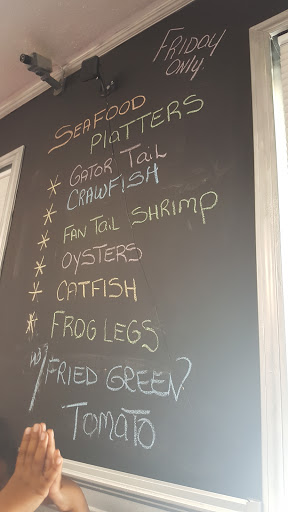 FRIDAY
ONLY
SEAFOOD
PLATTERS
* GATOR TAIL
* CRAWFISH
* FAN TAIL SHRIMP
* OYSTERS
* CATFISH
* FROG LEGS
W/ FRIED GREEN
TOMATO